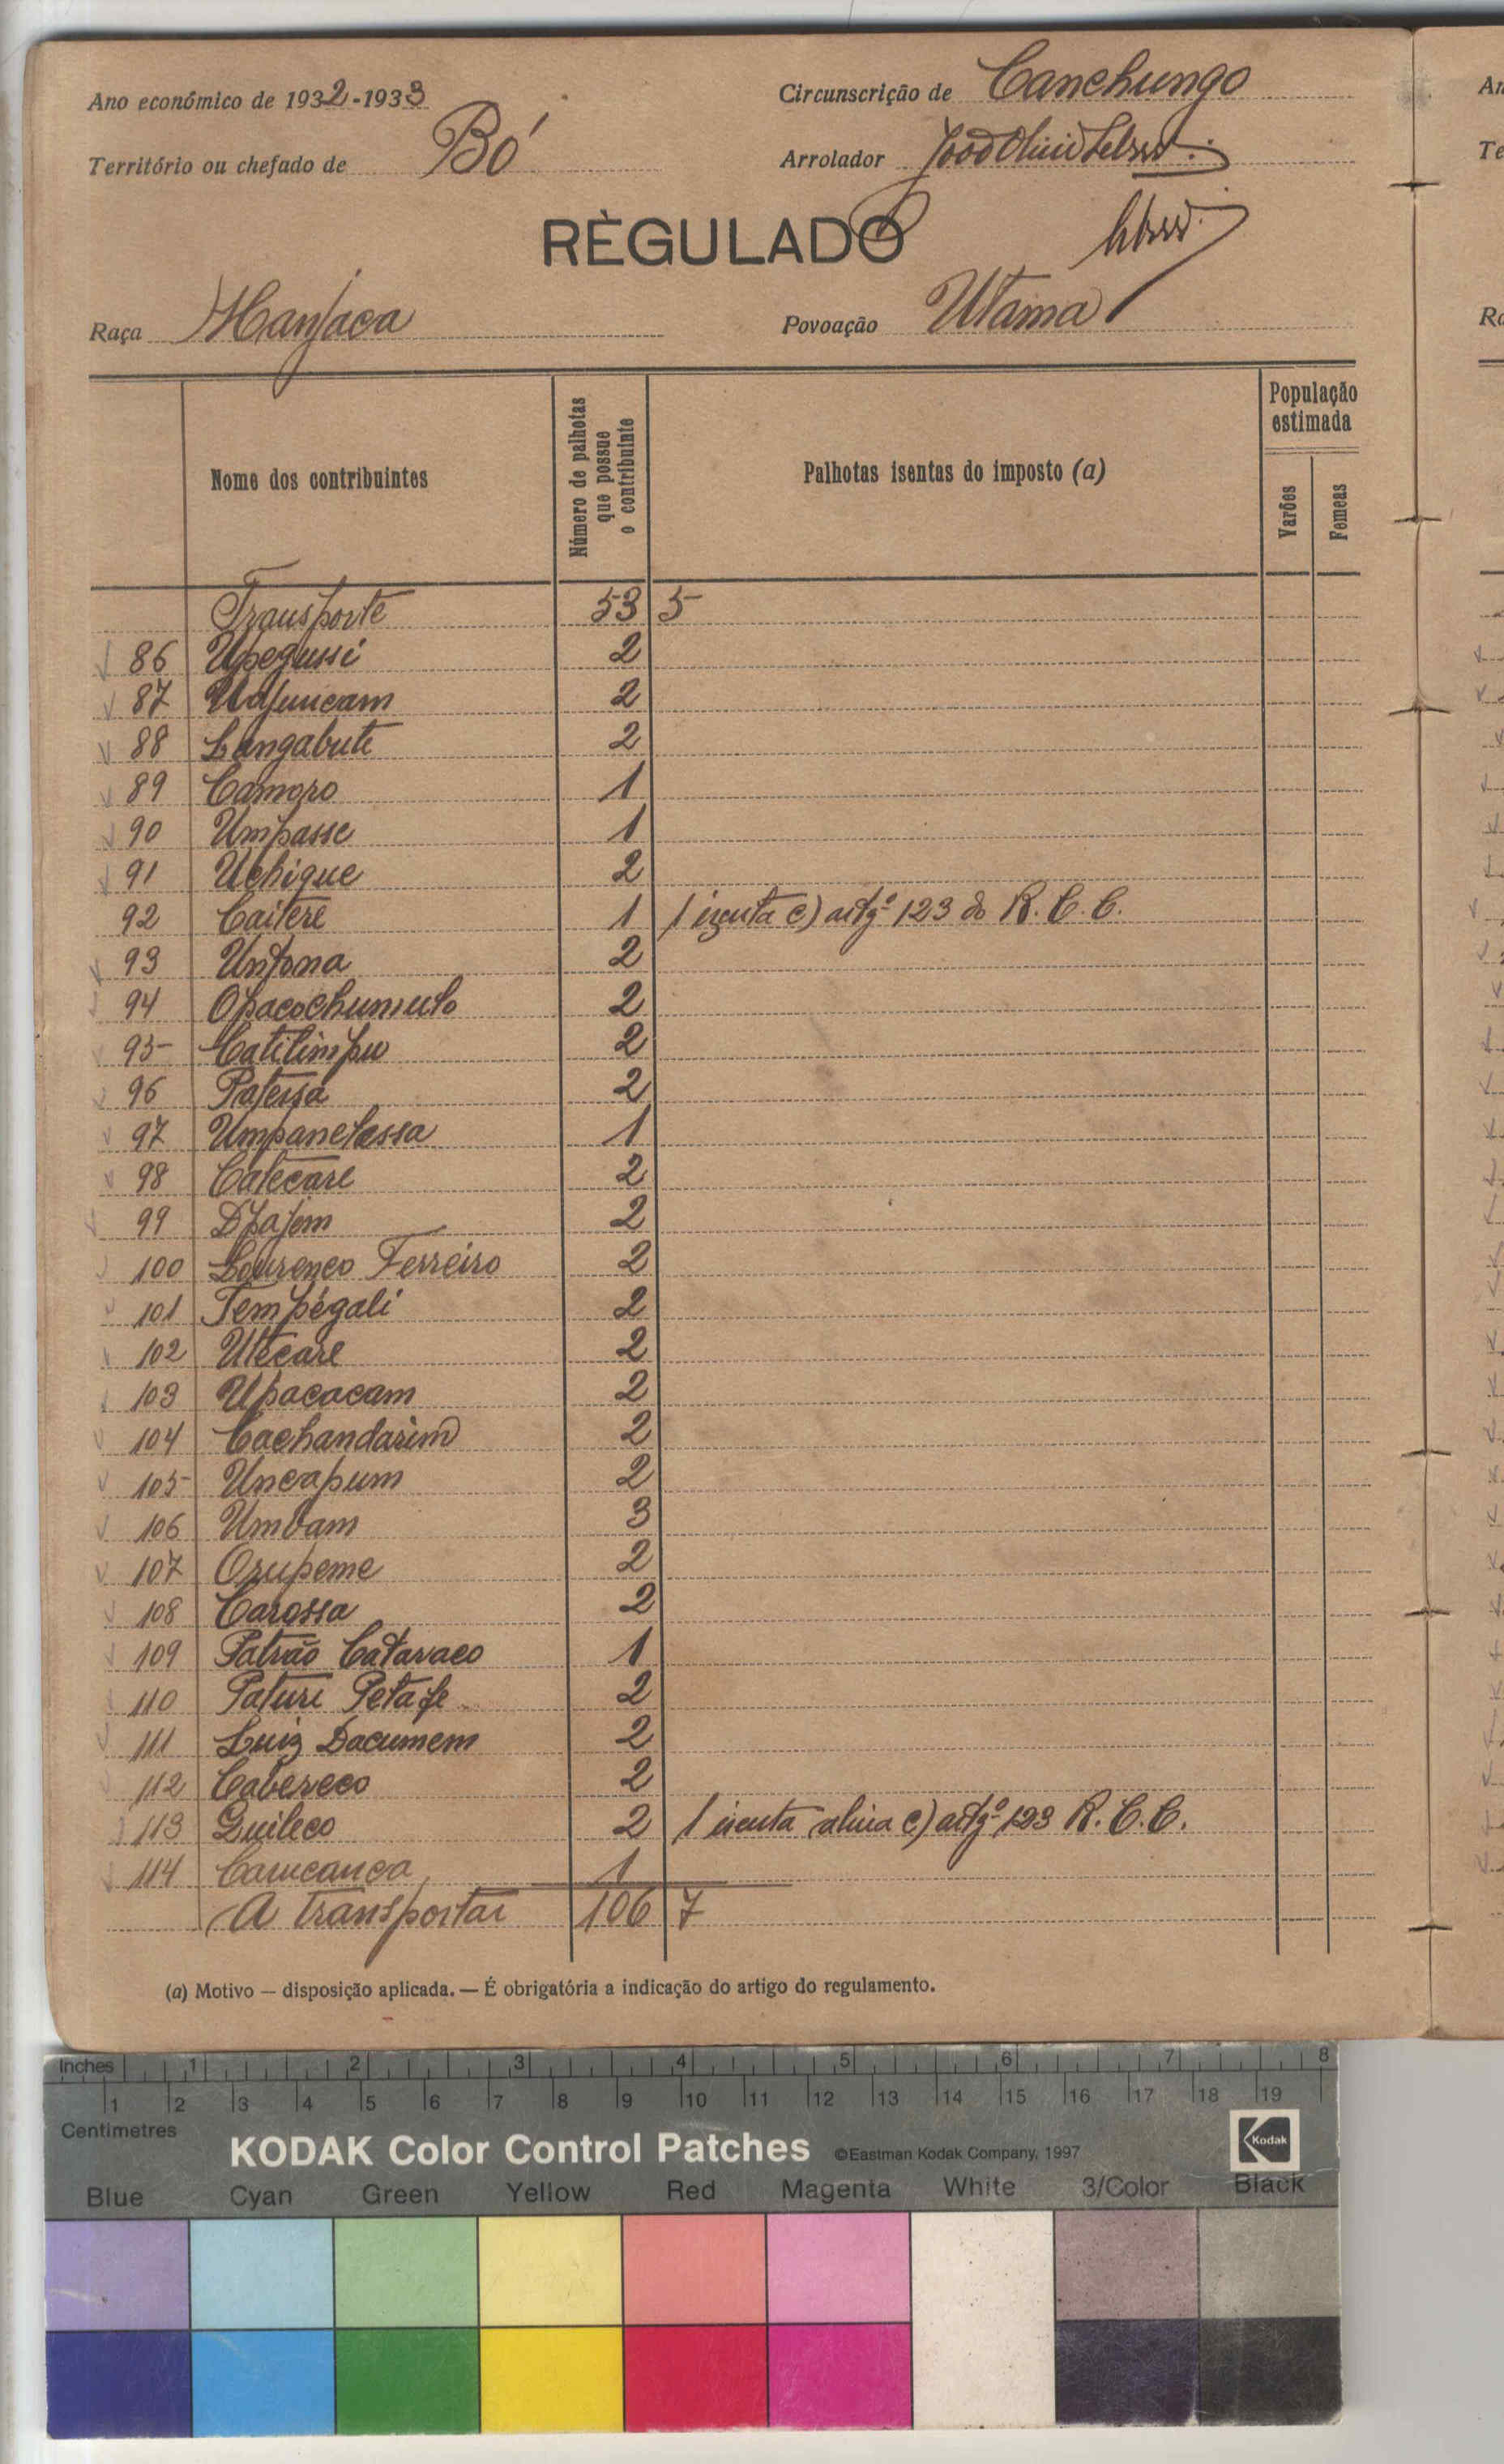 Ano económico de 1932-1933
Circunscrição de Canchungo
Território ou chefado de Bó
Arrolador
RÈGULADO
Raça Manjaca
Povoação Utama
Nome dos contribuintes
Número de palhotas que possue o contribuinte
Palhotas isentas do imposto (a)
População estimada
Varões
Femeas
Transporte 53 5
86 Upegussi 2
87 2
88 Langabute 2
89 Camoro 1
90 Umpasse 1
91 Uchique 2
92 Caitere 1 1 izenta c) artgº 123 do R. C. C.
93 Untona 2
94 Opacochumulo 2
95 Catilimpu 2
96 Patessa 2
97 Umpanelassa 1
98 Catecare 2
99 2
100 Lourenco Ferreiro 2
101 Tempégali 2
102 Utecare 2
103 Upacacam 2
104 Cachandarim 2
105 Uncapum 2
106 Umbam 3
107 Orupeme 2
108 Carossa 2
109 Patrão Catavaco 1
110 Paturi 2
111 Luiz Dacumem 2
112 Cabereco 2
113 Quileco 2 1 izenta alinia c) artgº 123 R. C. C.
114 1
A transportar 106 7
(a) Motivo — disposição aplicada. — É obrigatória a indicação do artigo do regulamento.
Inches 1 2 3 4 5 6 7 8
1 2 3 4 5 6 7 8 9 10 11 12 13 14 15 16 17 18 19
Centimetres
KODAK Color Control Patches ©Eastman Kodak Company, 1997 Kodak
Blue Cyan Green Yellow Red Magenta White 3/Color Black